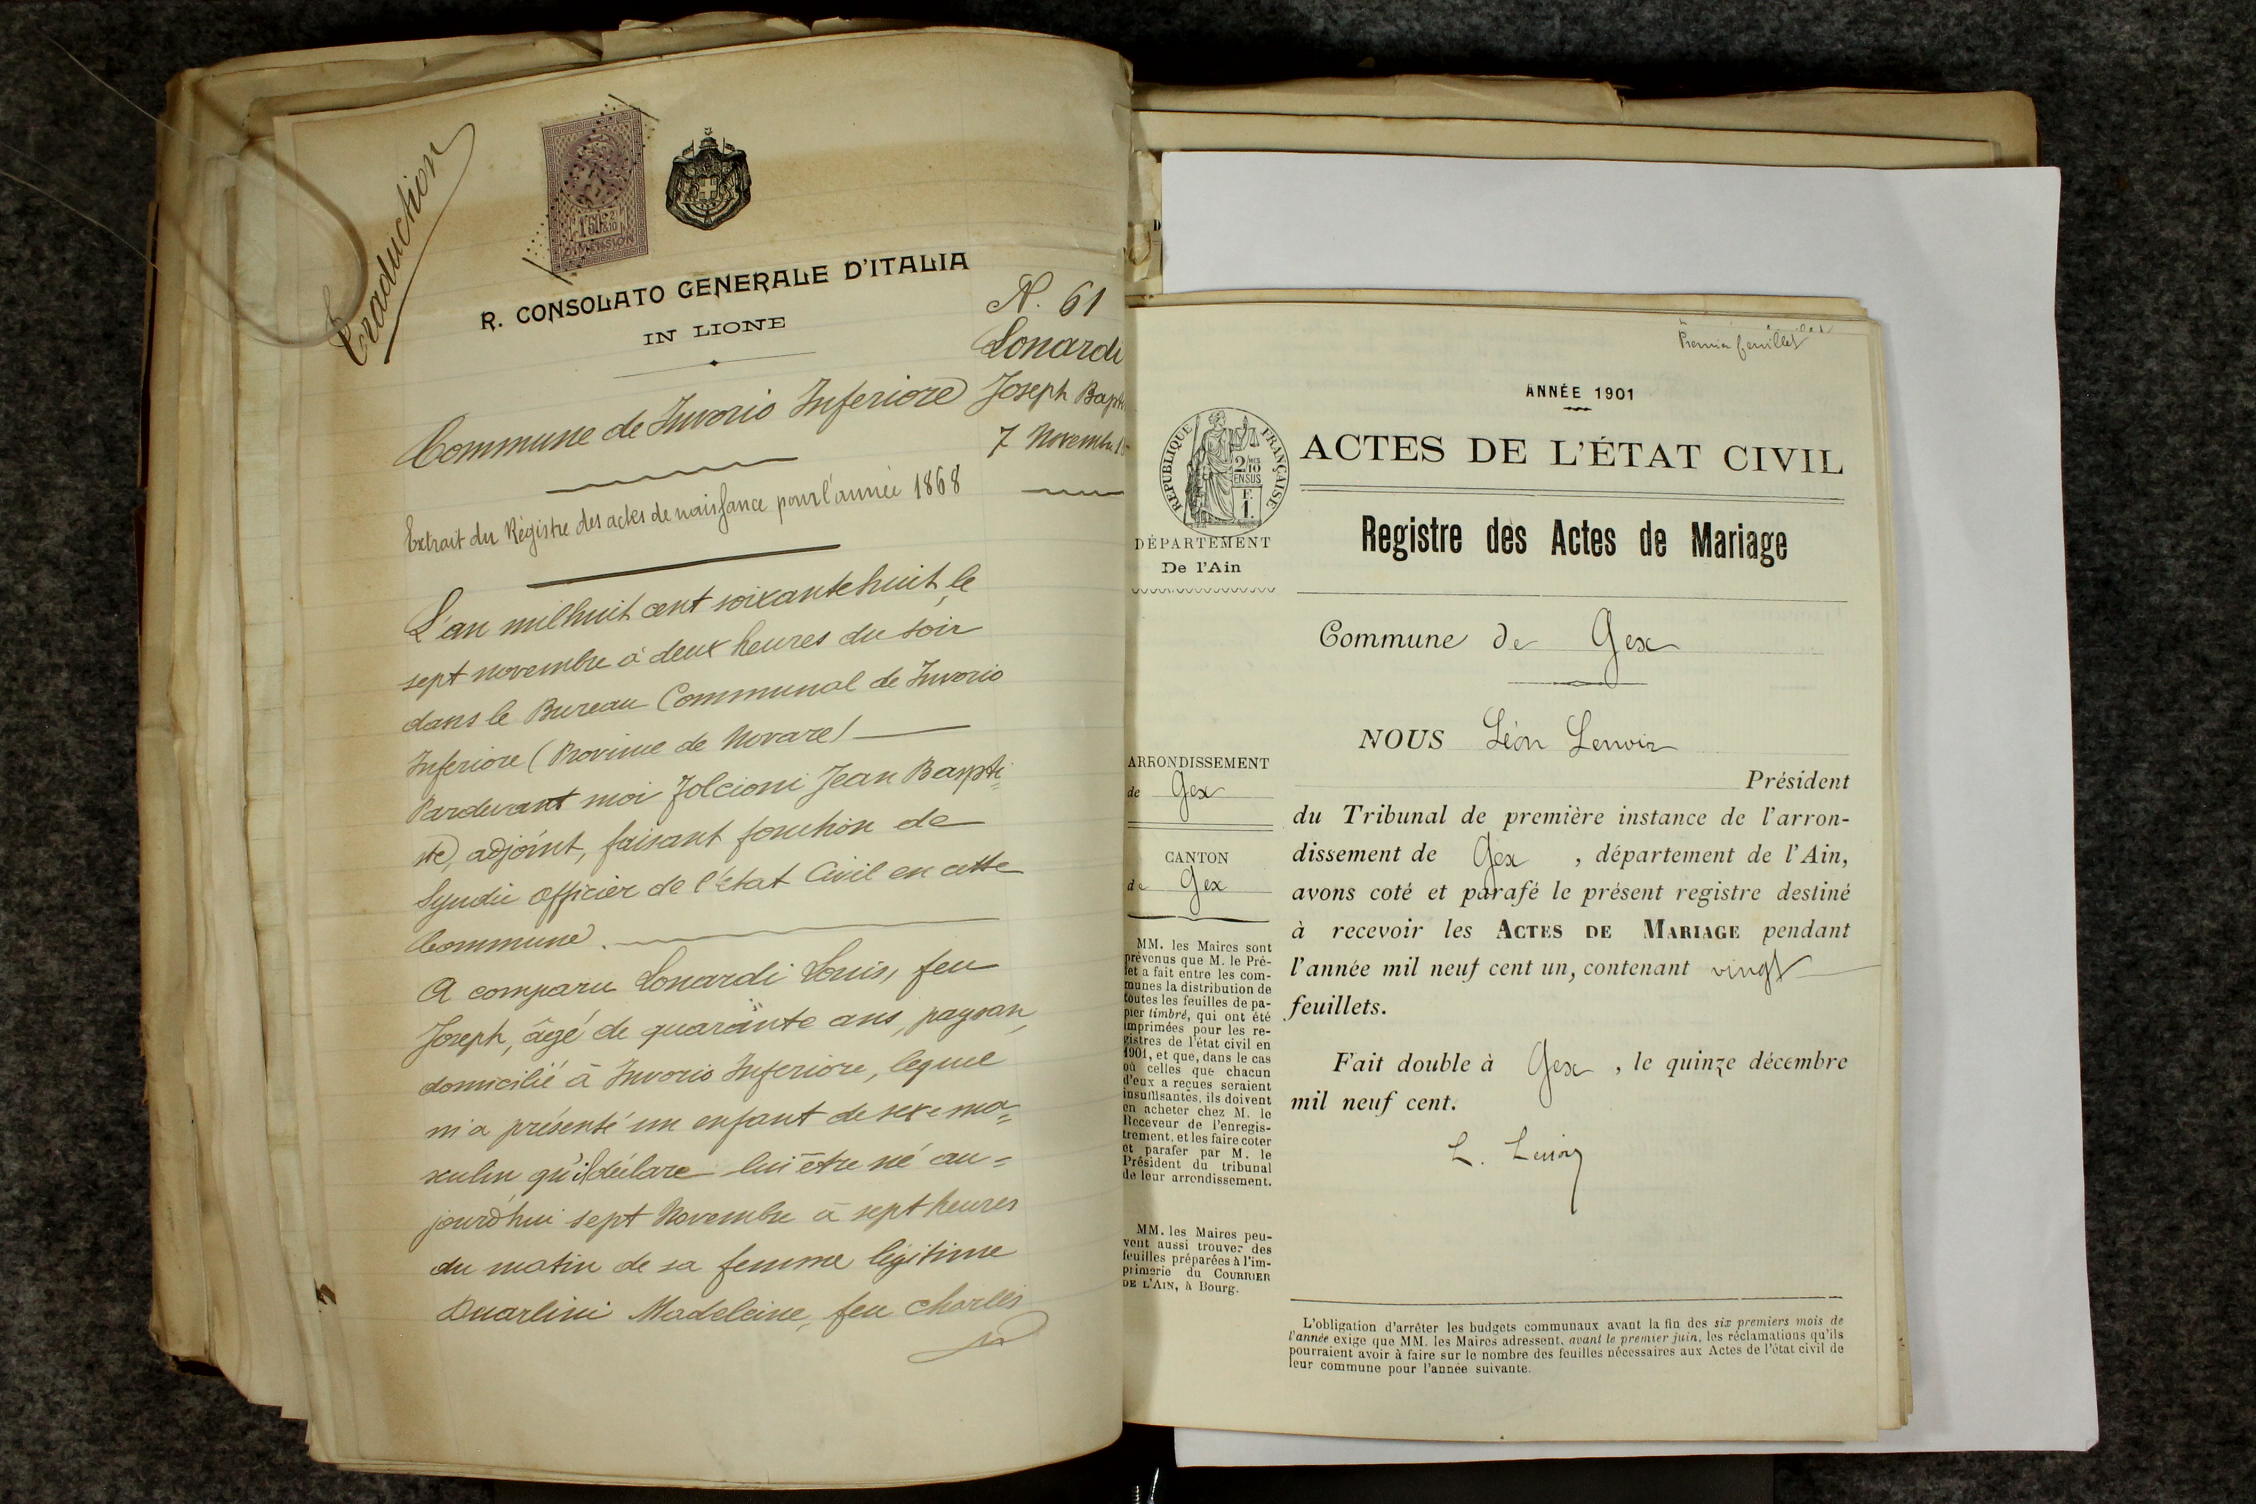 Traduction
1f50c
DIMENSION
R. CONSOLATO GENERALE D'ITALIA
IN LIONE
N. 61
Lonardi
Joseph Bapti
7 Novembre 18
Commune de Invorio Inferiore
Extrait du Régistre des actes de naissance pour l'année 1868
L'an mil huit cent soixante huit, le
sept novembre à deux heures du soir
dans le Bureau Communal de Invorio
Inferiore (Province de Novare)
Pardevant moi Folcioni Jean Bapti-
ste, adjoint, faisant fonction de
Syndic officier de l'état Civil en cette
Commune.
A comparu Lonardi Louis, feu
Joseph, âgé de quarante ans, paysan,
domicilié à Invorio Inferiore, lequel
m'a présenté un enfant de sexe ma=
sculin qu'il déclare lui être né au=
jourd'hui sept Novembre à sept heures
du matin de sa femme légitime
Duarlini Madeleine, feu Charles
Premier feuillet
ANNÉE 1901
RÉPUBLIQUE FRANÇAISE
2/10 MES
EN SUS
F.
1.
ACTES DE L'ÉTAT CIVIL
DÉPARTEMENT
De l'Ain
Registre des Actes de Mariage
Commune de Gex
NOUS Léon Lenoir
Président
du Tribunal de première instance de l'arron-
dissement de Gex , département de l'Ain,
avons coté et parafé le présent registre destiné
à recevoir les ACTES DE MARIAGE pendant
l'année mil neuf cent un, contenant vingt
feuillets.
Fait double à Gex , le quinze décembre
mil neuf cent.
L. Lenoir
ARRONDISSEMENT
de Gex
CANTON
de Gex
MM. les Maires sont
prévenus que M. le Pré-
fet a fait entre les com-
munes la distribution de
toutes les feuilles de pa-
pier timbré, qui ont été
imprimées pour les re-
gistres de l'état civil en
1901, et que, dans le cas
où celles que chacun
d'eux a reçues seraient
insuffisantes, ils doivent
en acheter chez M. le
Receveur de l'enregis-
trement, et les faire coter
et parafer par M. le
Président du tribunal
de leur arrondissement.
MM. les Maires peu-
vent aussi trouver des
feuilles préparées à l'im-
primerie du COURRIER
DE L'AIN, à Bourg.
L'obligation d'arrêter les budgets communaux avant la fin des six premiers mois de
l'année exige que MM. les Maires adressent, avant le premier juin, les réclamations qu'ils
pourraient avoir à faire sur le nombre des feuilles nécessaires aux Actes de l'état civil de
leur commune pour l'année suivante.